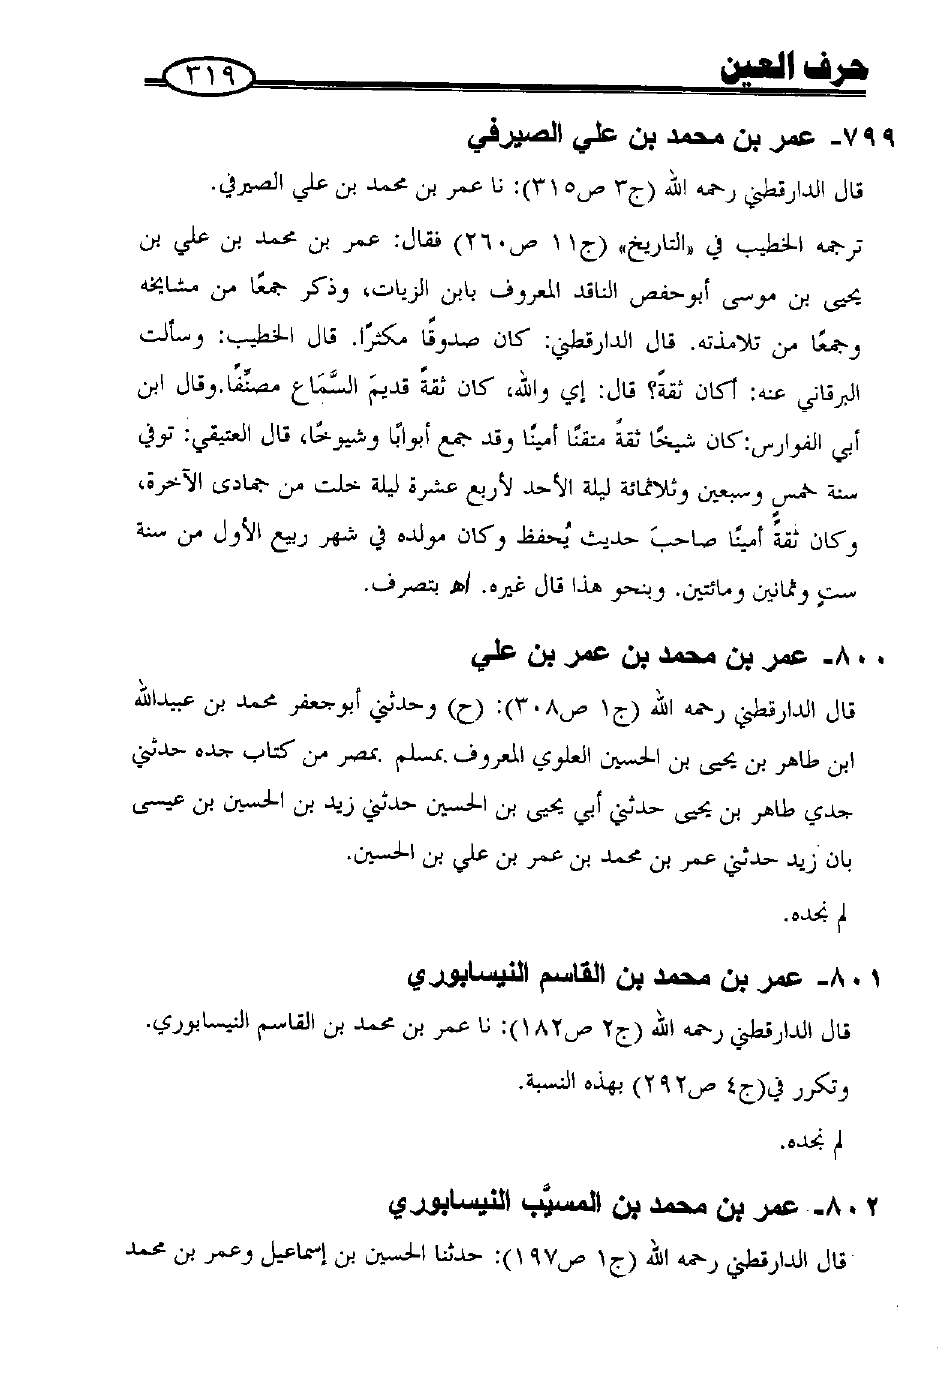 حرف العين
٣١٩
٧٩٩- عمر بن محمد بن علي الصيرفي
قال الدارقطني رحمه الله (ج٣ ص٣١٥): نا عمر بن محمد بن علي الصيرفي.
ترجمه الخطيب في «التاريخ» (ج١١ ص٢٦٠) فقال: عمر بن محمد بن علي بن
يحيى بن موسى أبوحفص الناقد المعروف بابن الزيات، وذكر جمعًا من مشايخه
وجمعًا من تلامذته. قال الدارقطني: كان صدوقًا مكثرًا. قال الخطيب: وسألت
البرقاني عنه: أكان ثقةً؟ قال: إي والله، كان ثقةً قديمَ السَّمَاع مصنِّفًا.وقال ابن
أبي الفوارس:كان شيخًا ثقةً متقنًا أمينًا وقد جمع أبوابًا وشيوخًا، قال العتيقي: توفي
سنة خمس وسبعين وثلاثمائة ليلة الأحد لأربع عشرة ليلة خلت من جمادى الآخرة،
وكان ثقةً أمينًا صاحبَ حديث يُحفظ وكان مولده في شهر ربيع الأول من سنة
ستٍ وثمانين ومائتين. وبنحو هذا قال غيره. اهـ بتصرف.
٨٠٠- عمر بن محمد بن عمر بن علي
قال الدارقطني رحمه الله (ج١ ص٣٠٨): (ح) وحدثني أبوجعفر محمد بن عبيدالله
ابن طاهر بن يحيى بن الحسين العلوي المعروف بمسلم بمصر من كتاب جده حدثني
جدي طاهر بن يحيى حدثني أبي يحيى بن الحسين حدثني زيد بن الحسين بن عيسى
بان زيد حدثني عمر بن محمد بن عمر بن علي بن الحسين.
لم نجده.
٨٠١- عمر بن محمد بن القاسم النيسابوري
قال الدارقطني رحمه الله (ج٢ ص١٨٢): نا عمر بن محمد بن القاسم النيسابوري.
وتكرر في(ج٤ ص٢٩٢) بهذه النسبة.
لم نجده.
٨٠٢- عمر بن محمد بن المسيَّب النيسابوري
قال الدارقطني رحمه الله (ج١ ص١٩٧): حدثنا الحسين بن إسماعيل وعمر بن محمد